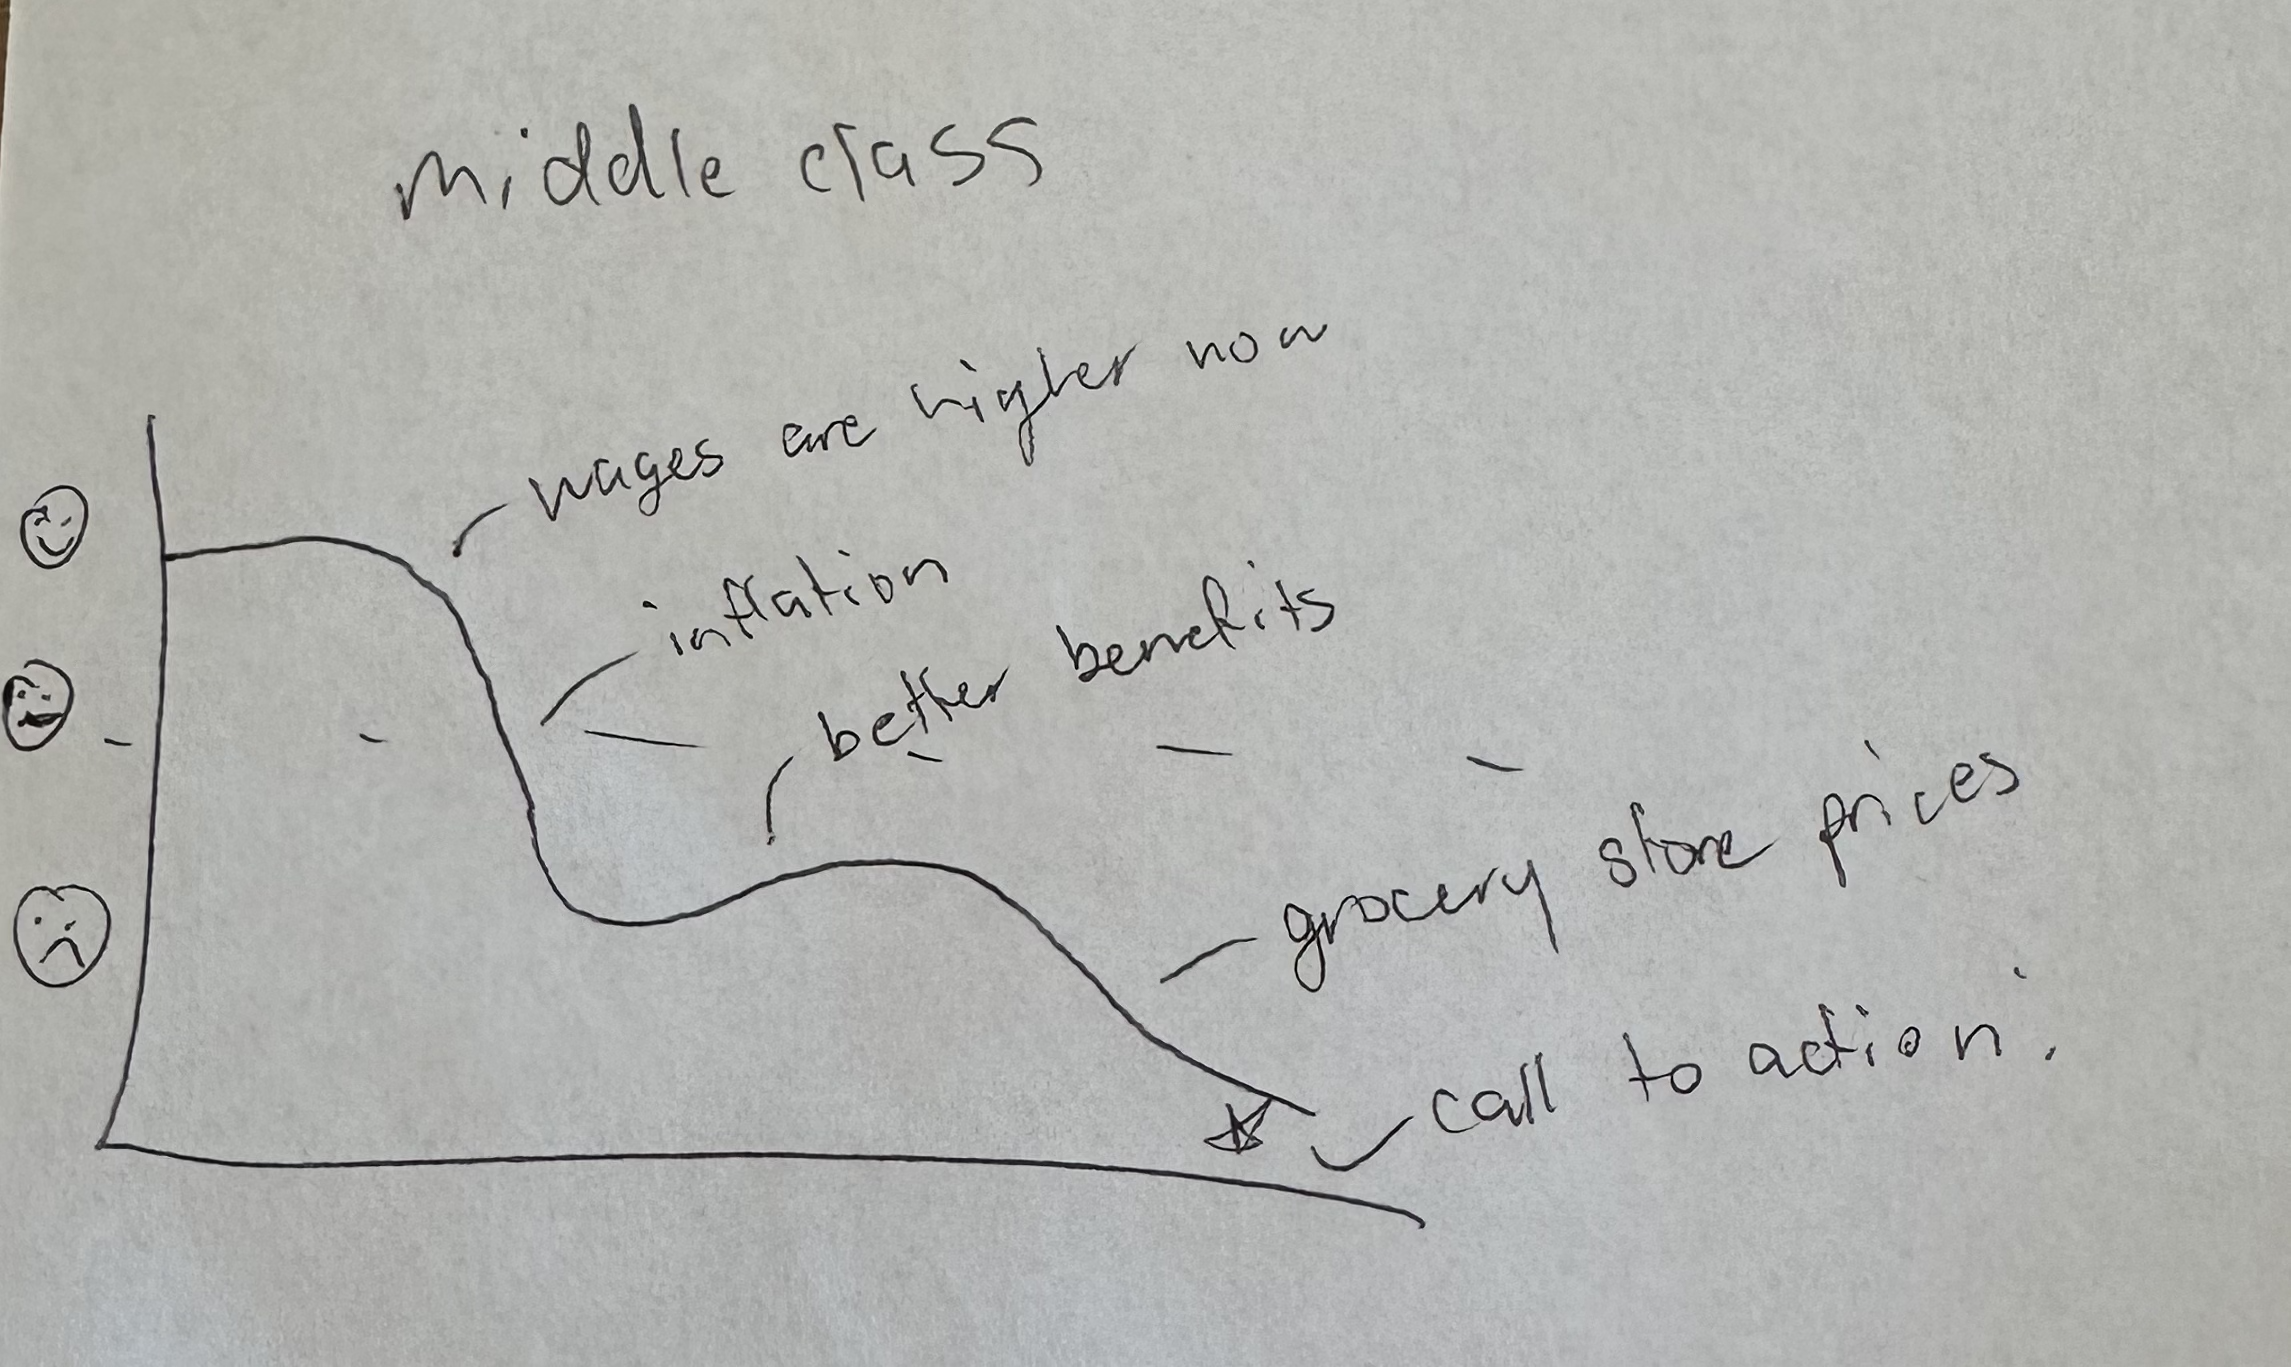 middle class
wages are higher now
inflation
better benefits
grocery store prices
call to action: